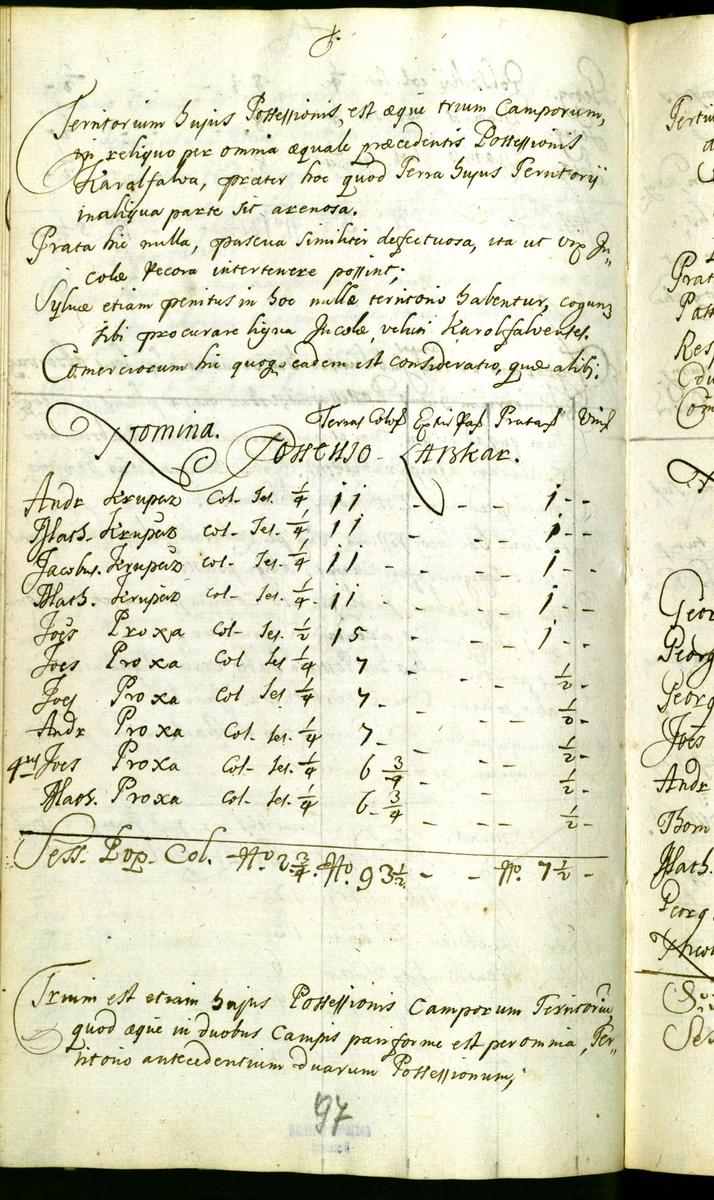 Territorium hujus Possessionis, est æque trium Camporum,
in reliquo per omnia æquale præcedentis Possessionis
Karolfalva, præter hoc quod Terra hujus Territorÿ
in aliqua parte sit arenosa.
Prata hic nulla, pascua similiter defectuosa, ita ut vix In„
colæ Pecora intertenere possint;
Sylvæ etiam penitus in hoc nullæ territorio habentur, cogun„
sibi procurare ligna Incolæ, veluti Karolfalvenses.
Comerciorum hic quoq, eadem est consideratio, quæ alibi.
Nomina. Terras Colon Extir Pas Pratas Vin
Possessio - Abkar.
Andr Krupar Col- Ses. 1/4 11 - - - 1 - -
Math. Krupar Col- Ses. 1/4 11 - - - 1 - -
Jacobus. Krupar Col- Ses. 1/4 11 - - - 1 - -
Math. Krupar Col- Ses. 1/4 11 - - - 1 - -
Joes Proxa Col- Ses. 1/2 15 - - - 1 - -
Joes Proxa Col Ses 1/4 7 - - - 1/2 -
Joes Proxa Col Ses. 1/4 7 - - - 1/2 -
Andr Proxa Col- Ses. 1/4 7 - - - 1/2 -
Joes Proxa Col- Ses. 1/4 6 3/4 - - - 1/2 -
Math. Proxa Col- Ses. 1/4 6 3/4 - - - 1/2 -
Sess. Pop. Col. No 2 3/4. No. 93 1/2 - - No. 7 1/2 -
Trium est etiam hujus Possessionis Camporum Territoriu,
quod æque in duobus Campis pariforme est per omnia, Ter„
ritorio antecedentium duarum Possessionum,
97